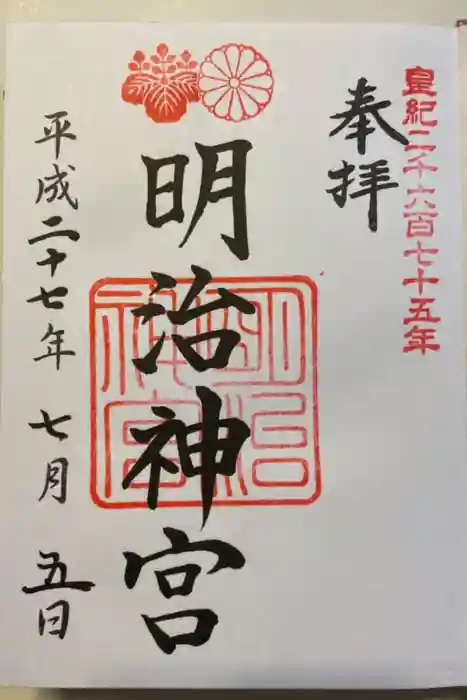 皇紀二千六百七十五年
奉拝
明治神宮
明治神宮
平成二十七年 七月 五日